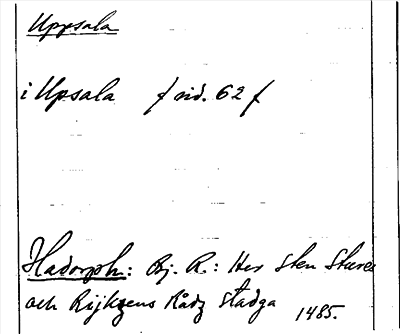 Uppsala
i Upsala / sid. 62 f
Hadorph: Bj. R.: Her Sten Sture
och Rijkzens Rådz Stadga 1485.